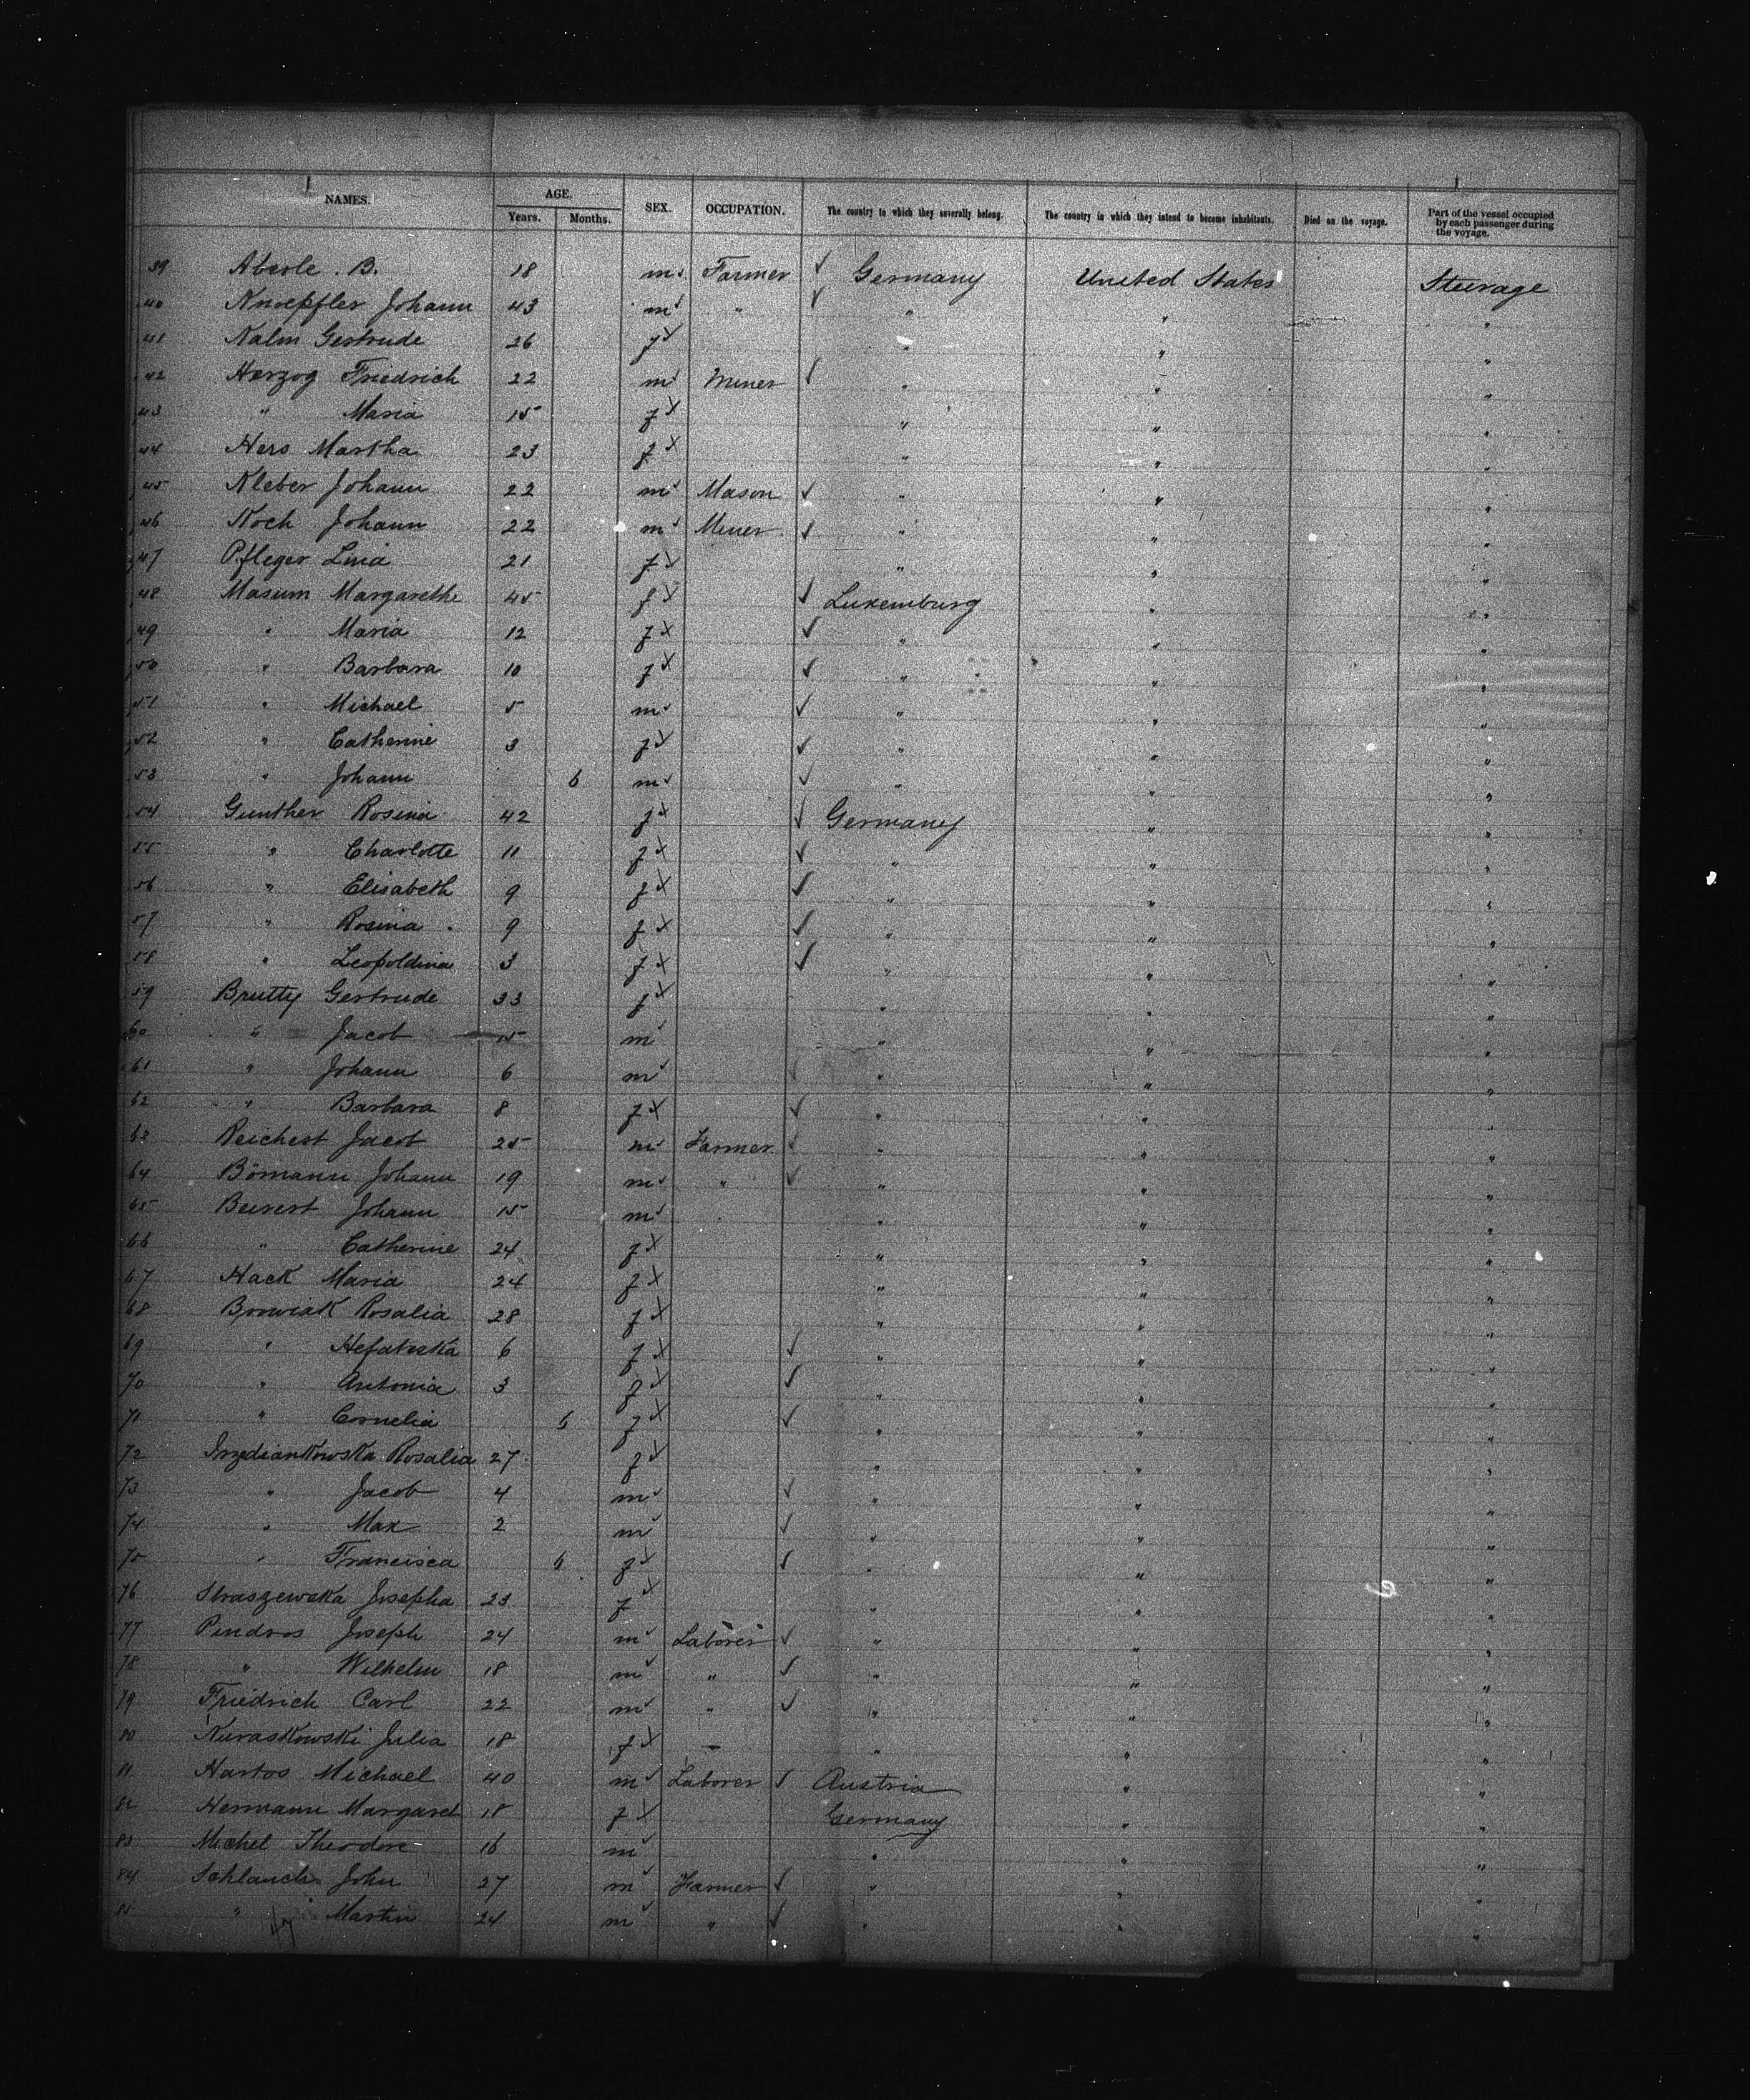 NAMES. AGE. SEX. OCCUPATION. The country to which they severally belong. The country in which they intend to become inhabitants. Died on the voyage. Part of the vessel occupied by each passenger during the voyage.
Years. Months.
39 Aberle . B. 18 m Farmer Germany United States Steerage
40 Knoepfler Johann 43 m " " " "
41 Nalm Gertrude 26 f " " "
42 Herzog Friedrich 22 m Miner " " "
43 " Maria 15 f " " "
44 Hers Martha 23 f " " "
45 Kleber Johann 22 m Mason " " "
46 Koch Johann 22 m Miner " " "
47 Pfleger Lina 21 f " " "
48 Masum Margarethe 45 f Luxemburg " "
49 " Maria 12 f " " "
50 " Barbara 10 f " " "
51 " Michael 5 m " " "
52 " Catherine 3 f " " "
53 " Johann 6 m " " "
54 Gunther Rosina 42 f Germany " "
55 " Charlotte 11 f " " "
56 " Elisabeth 9 f " " "
57 " Rosina 9 f " " "
58 " Leopoldina 3 f " " "
59 Brutty Gertrude 33 f " " "
60 " Jacob 15 m " " "
61 " Johann 6 m " " "
62 " Barbara 8 f " " "
63 Reichert Jacob 25 m Farmer " " "
64 Bömann Johann 19 m " " " "
65 Beirert Johann 15 m " " "
66 " Catherine 24 f " " "
67 Hack Maria 24 f " " "
68 Borwiak Rosalia 28 f " " "
69 " 6 f " " "
70 " Antonia 3 f " " "
71 " Cornelia 6 f " " "
72 Rosalia 27 f " " "
73 " Jacob 4 m " " "
74 " Max 2 m " " "
75 " Francisca 6 f " " "
76 Straszewska Josepha 23 f " " "
77 Pindros Joseph 24 m Laborer " " "
78 " Wilhelm 18 m " " " "
79 Friedrich Carl 22 m " " " "
80 Kuraskowski Julia 18 f — " " "
81 Hartos Michael 40 m Laborer Austria " "
82 Hermann Margaret 18 f Germany " "
83 Michel Theodore 16 m " " "
84 Schlauch John 27 m Farmer " " "
85 " Martin 24 m " " " "
47